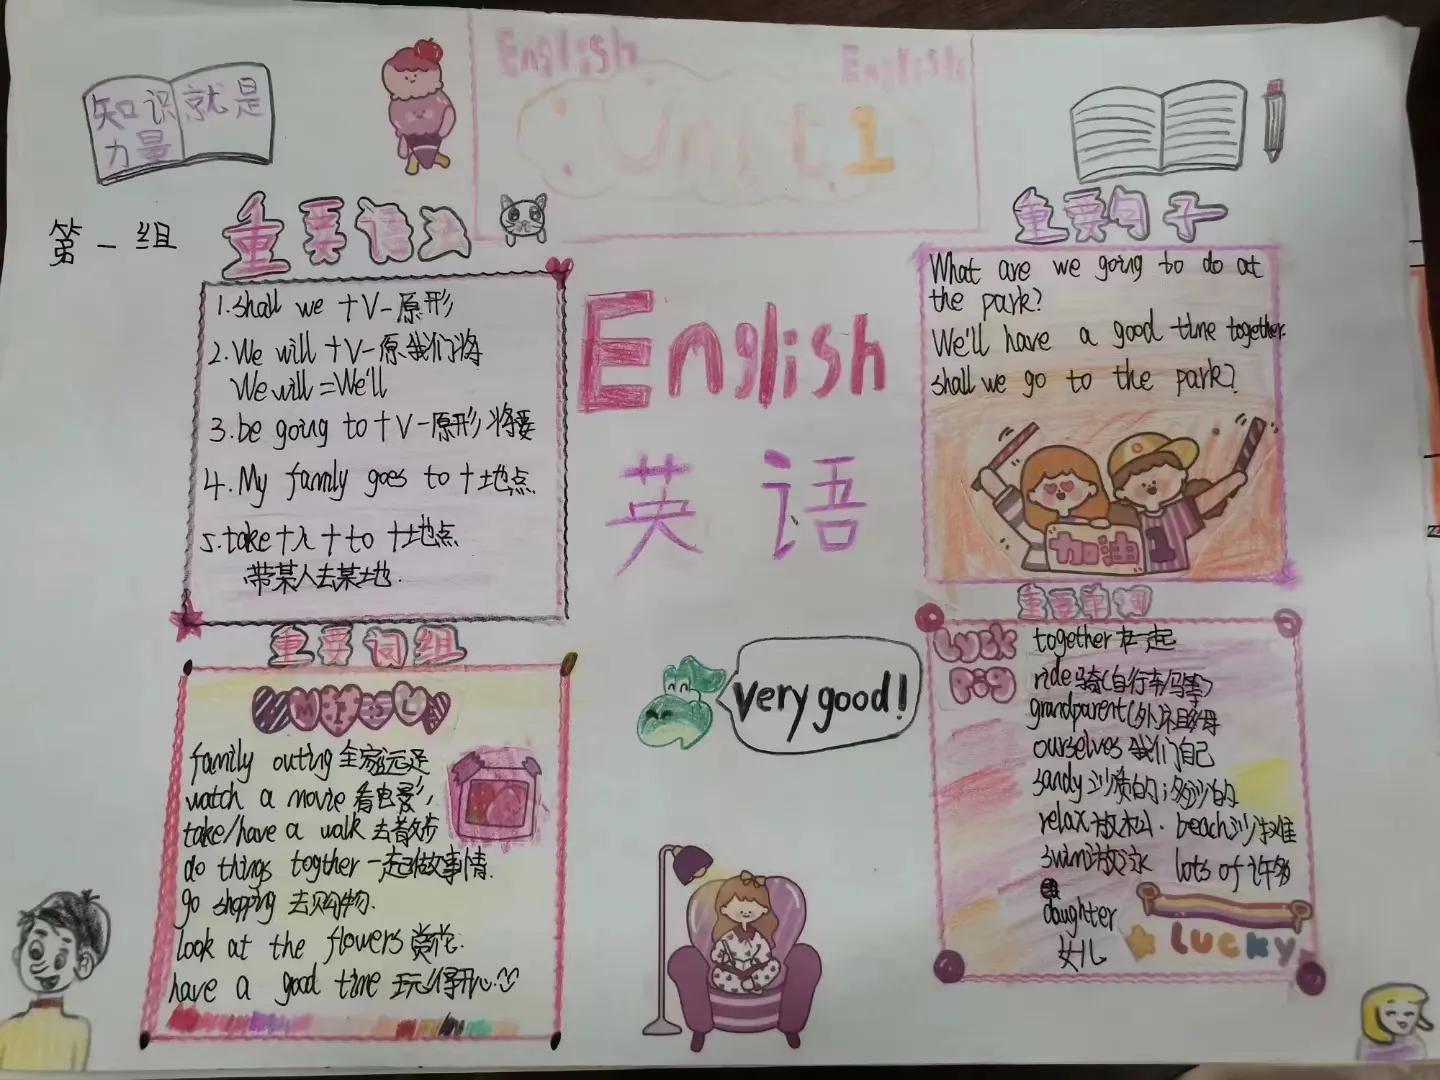 English
English
Unit 1
知识就是
力量
第一组
重要语法
1.shall we +V-原形
2.We will +V-原 我们将
We will=We'll
3.be going to+V-原形 将要
4.My family goes to +地点
5.take+人+to+地点
带某人去某地.
重要词组
family outing 全家远足
watch a movie 看电影
take/have a walk 去散步
do things togther 一起做事情.
go shopping 去购物.
look at the flowers 赏花.
have a good time 玩得开心.
English
英语
very good!
重要句子
What are we going to do at
the park?
We'll have a good time together.
shall we go to the park?
加油
1
重要单词
Luck
pig
together 在一起
ride 骑(自行车/马等)
grandparent(外)祖父母
ourselves 我们自己
sandy 沙质的;多沙的
relax 放松. beach 沙滩
swim lots of 许多
daughter
女儿
LUCKY